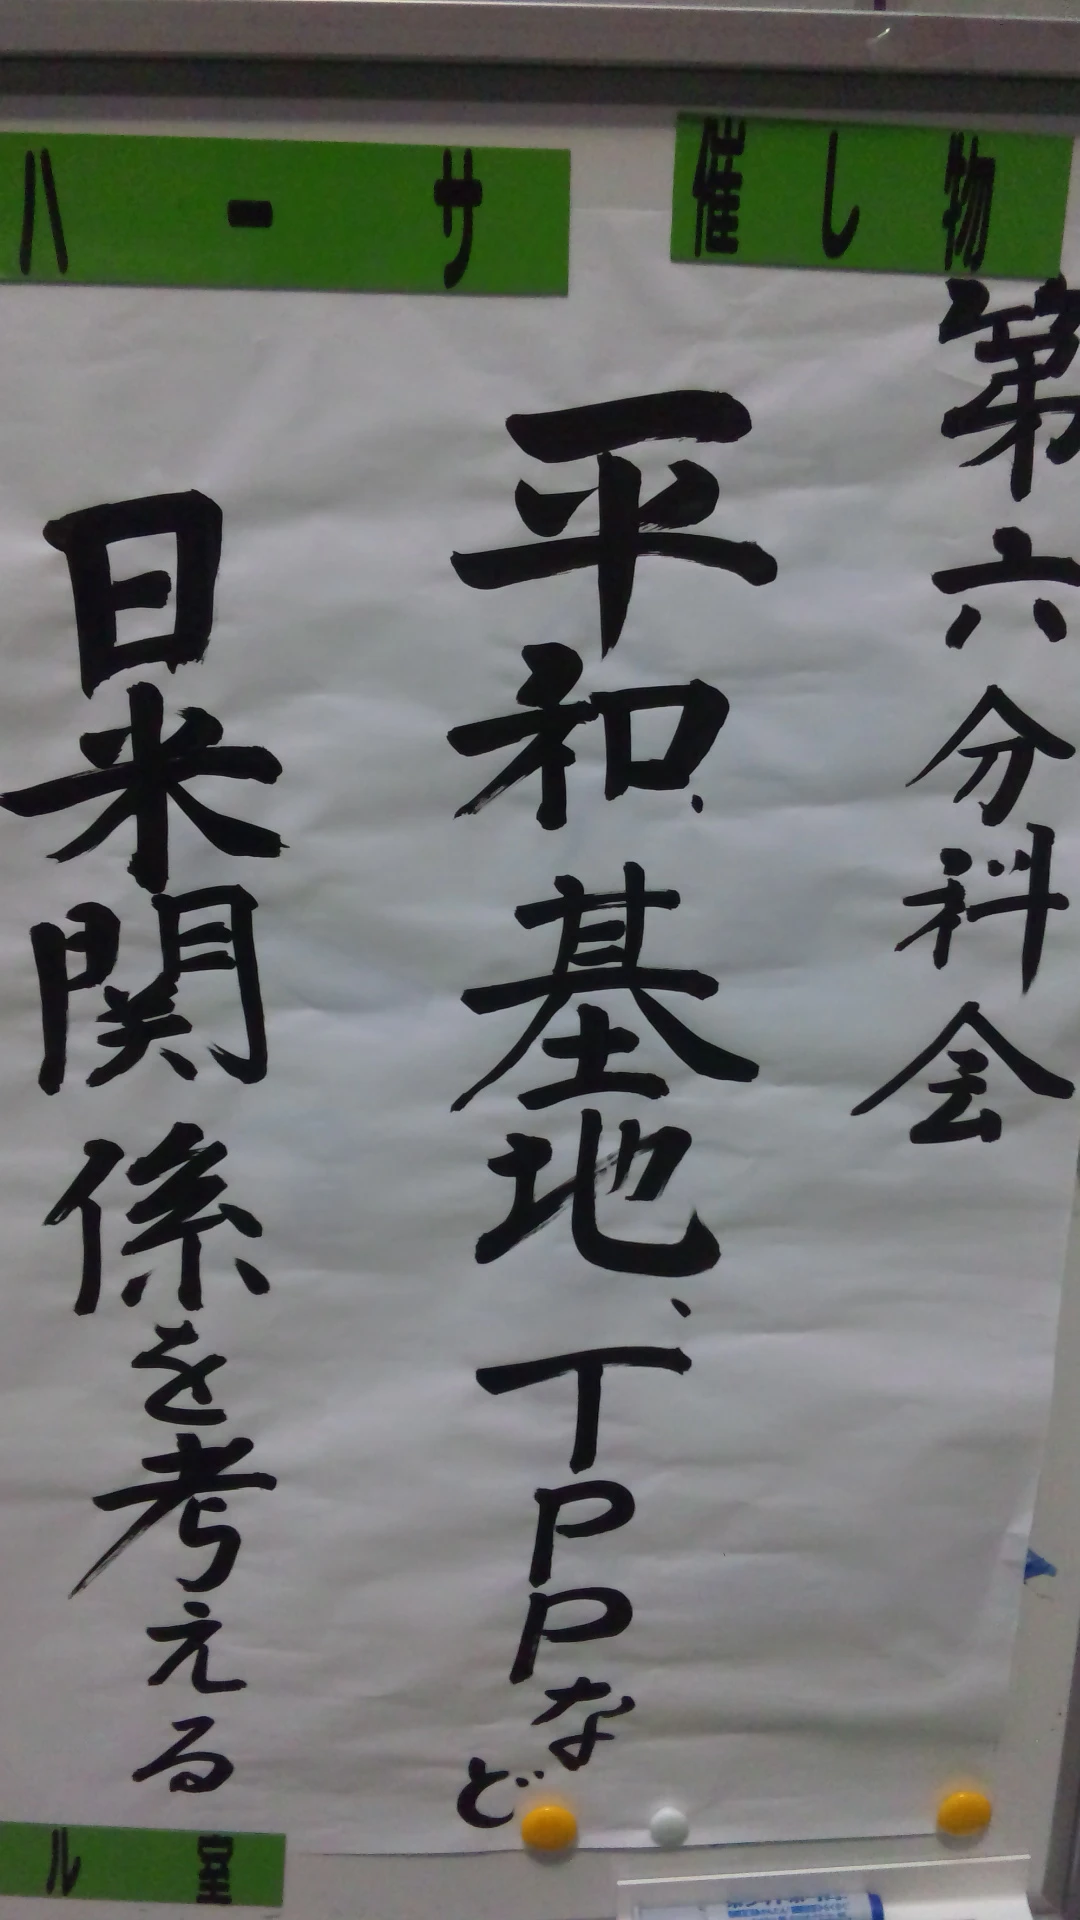 催し物
ハーサ
第六分科会
平和、基地、TPPなど
日米関係を考える
ル室